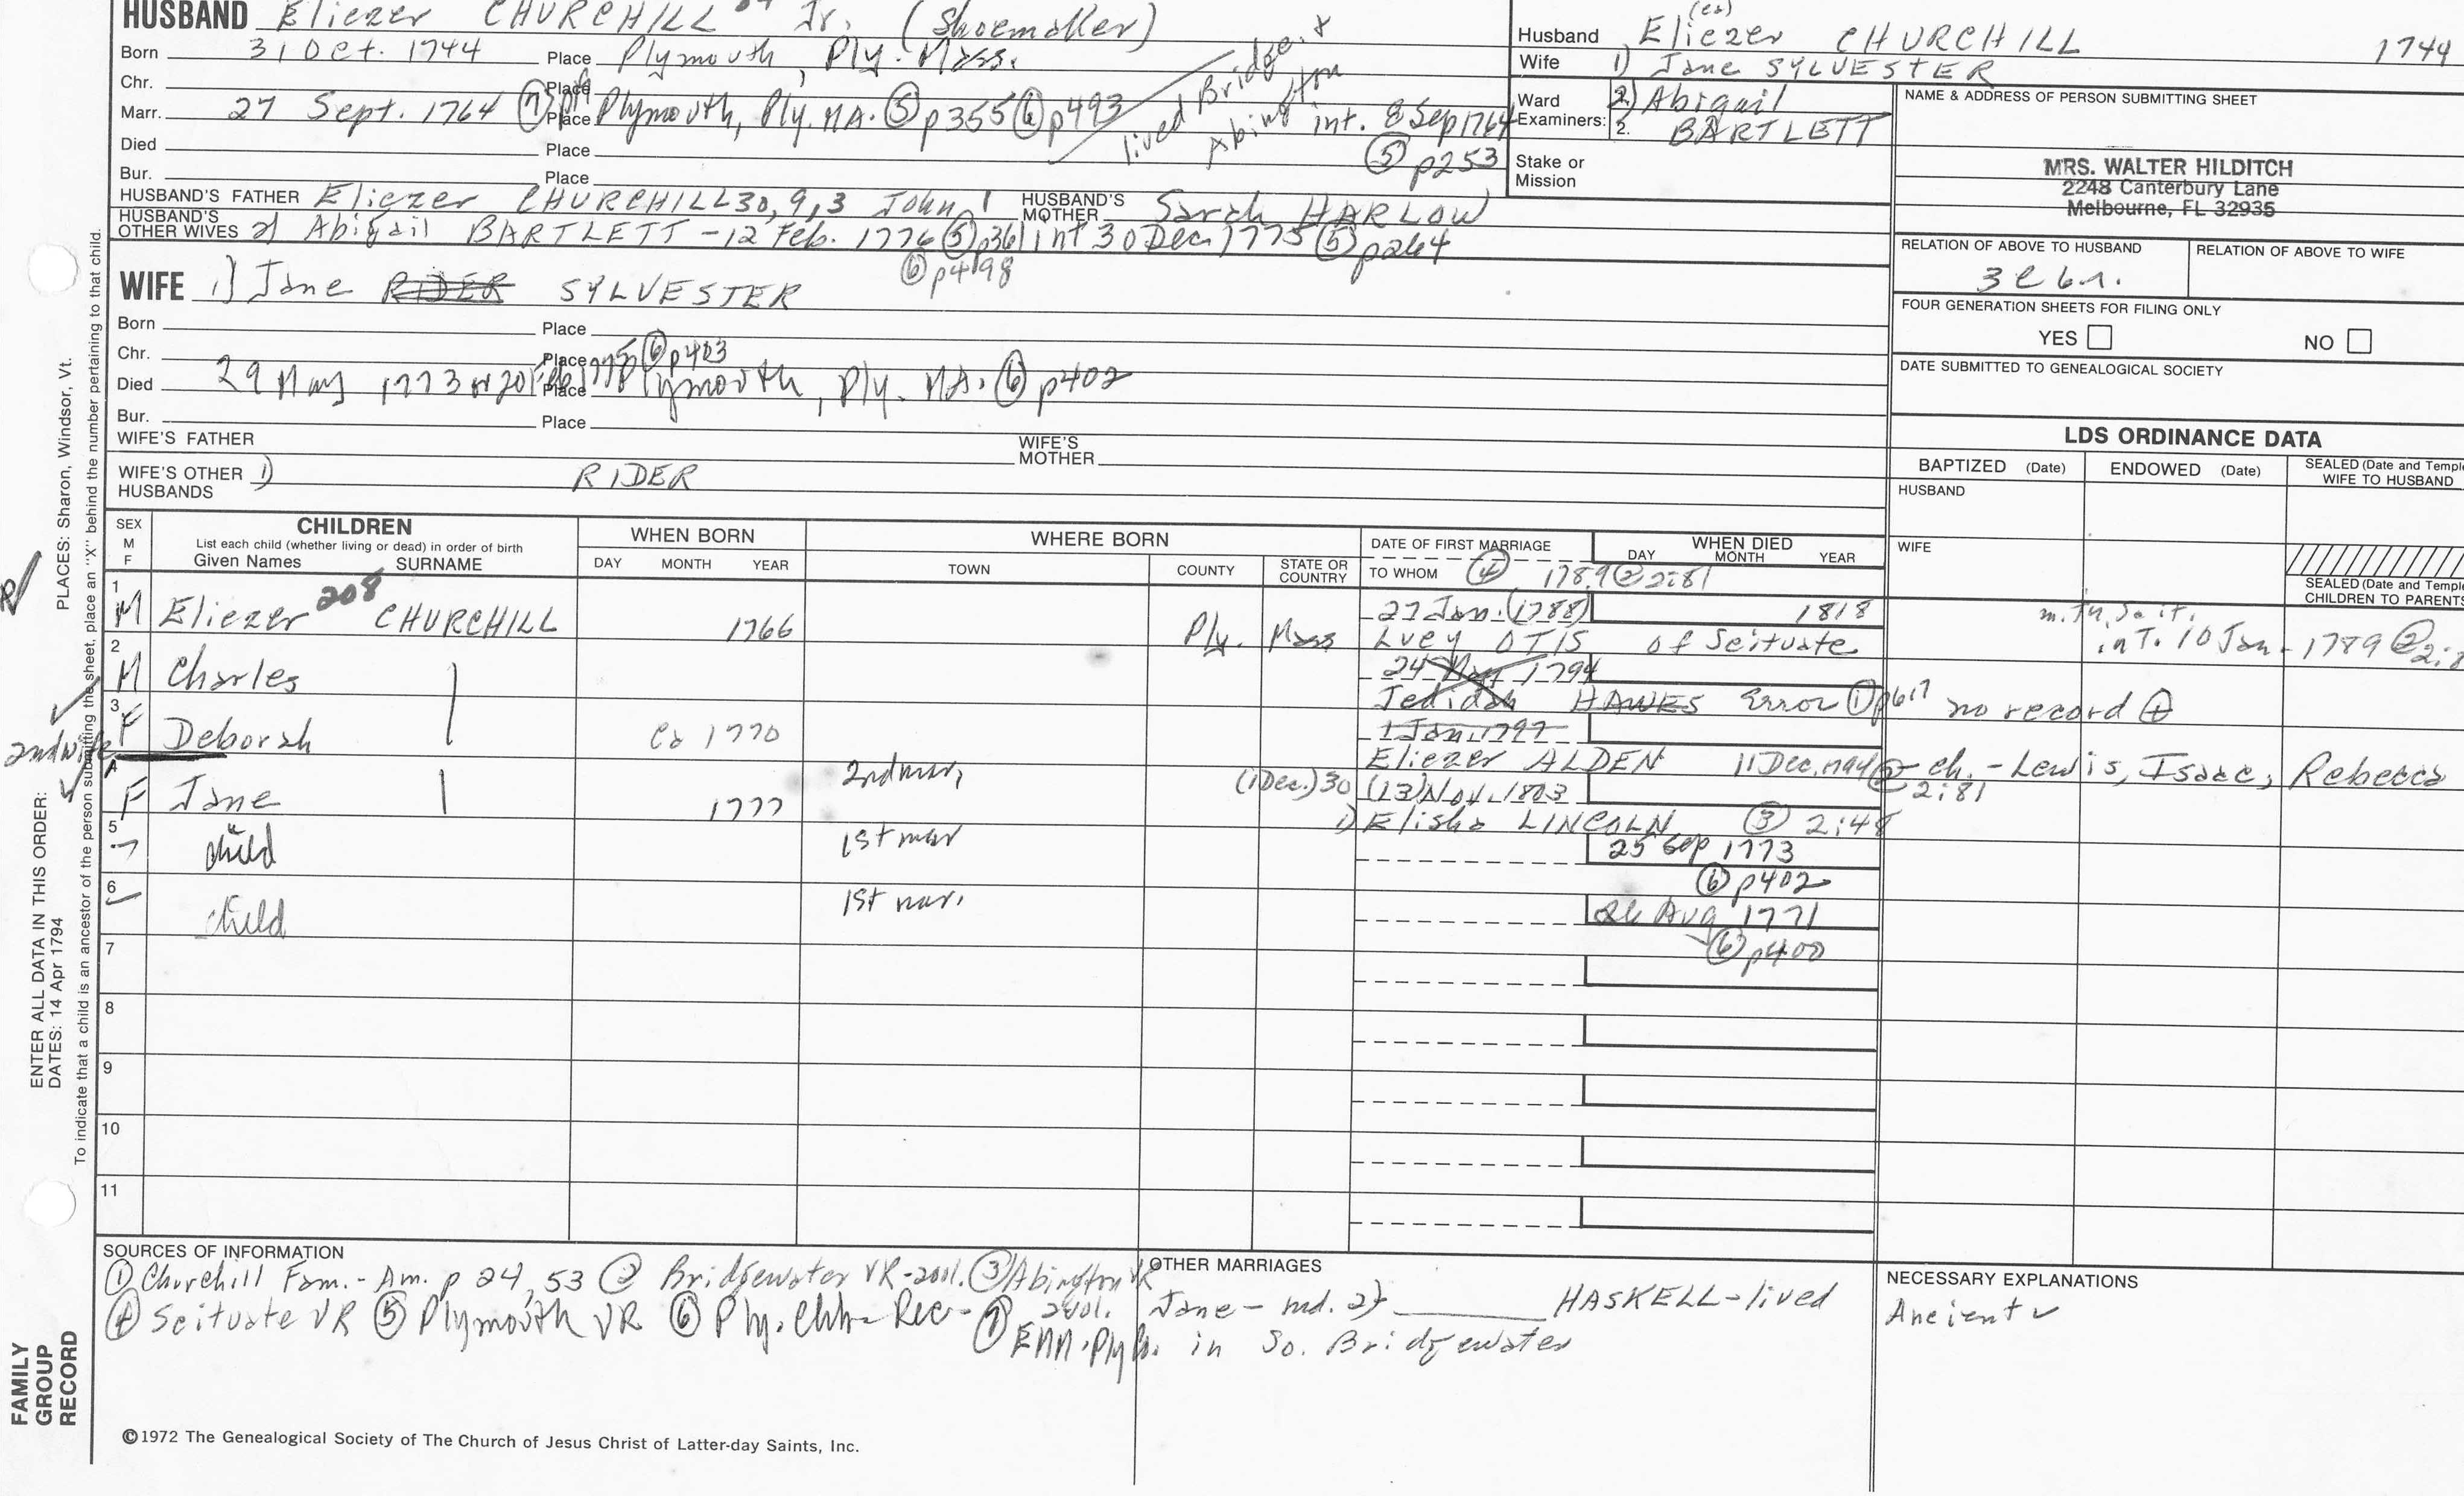 HUSBAND Eliezer CHURCHILL Jr. (Shoemaker)
Born 31 Oct. 1744 Place Plymouth, Ply. Mass.
Chr. Place
Marr. 27 Sept. 1764 ⑦ Place Plymouth, Ply. MA. ⑤ p355 ⑥ p493
int. 8 Sep 1764
⑤ p253
lived Bridge. &
Abington
Died Place
Bur. Place
HUSBAND'S FATHER Eliezer CHURCHILL 30, 9, 3 John 1 HUSBAND'S MOTHER Sarah HARLOW
HUSBAND'S OTHER WIVES 2) Abigail BARTLETT - 12 Feb. 1776 ⑤ p361 int 30 Dec. 1775 ⑤ p264
⑥ p498
WIFE 1) Jane RIDER SYLVESTER
Born Place
Chr. Place ⑥ p403
Died 29 May 1773 or 20 Place Plymouth, Ply. MA. ⑥ p402
Bur. Place
WIFE'S FATHER WIFE'S MOTHER
WIFE'S OTHER HUSBANDS 1) RIDER
(es)
Husband Eliezer CHURCHILL 1744
Wife 1) Jane SYLVESTER
Ward Examiners: 2) Abigail
2. BARTLETT
Stake or Mission
NAME & ADDRESS OF PERSON SUBMITTING SHEET
MRS. WALTER HILDITCH
2248 Canterbury Lane
Melbourne, FL 32935
RELATION OF ABOVE TO HUSBAND RELATION OF ABOVE TO WIFE
FOUR GENERATION SHEETS FOR FILING ONLY
YES NO
DATE SUBMITTED TO GENEALOGICAL SOCIETY
LDS ORDINANCE DATA
BAPTIZED (Date) ENDOWED (Date) SEALED (Date and Temple
WIFE TO HUSBAND
HUSBAND
WIFE
SEALED (Date and Temple
CHILDREN TO PARENTS
SEX M F
CHILDREN
List each child (whether living or dead) in order of birth
Given Names SURNAME
WHEN BORN
DAY MONTH YEAR
WHERE BORN
TOWN COUNTY STATE OR COUNTRY
DATE OF FIRST MARRIAGE
TO WHOM
WHEN DIED
DAY MONTH YEAR
④ 1789 ② 2:81
1 M Eliezer 208 CHURCHILL 1766 Ply. Mass 27 Jan. (1788) 1818
Lucy OTIS of Scituate
int. 10 Jan - 1789 ② 2:8
2 M Charles 24 May 1794
Jedidah HAWES Error ① p617 no record ④
3 F Deborah ca 1770 1 Jan. 1797
Eliezer ALDEN 11 Dec. 1794 ② ch. - Lewis, Isaac, Rebecca
2:81
2nd wife
4 F Jane 1777 2nd mar. (1 Dec.) 30 (13) Nov. 1803
1) Elisha LINCOLN ③ 2:48
5 child 1st mar 25 Sep 1773
⑥ p402
6 child 1st mar. 26 Aug 1771
⑥ p400
7
8
9
10
11
SOURCES OF INFORMATION
① Churchill Fam. - Am. p 24, 53 ② Bridgewater VR - 2vol. ③ Abington VR
2vol.
④ Scituate VR ⑤ Plymouth VR ⑥ Ply. Chh - Rec - ⑦
OTHER MARRIAGES
Jane - md. 2) HASKELL - lived
in So. Bridgewater
NECESSARY EXPLANATIONS
Ancient
©1972 The Genealogical Society of The Church of Jesus Christ of Latter-day Saints, Inc.
FAMILY
GROUP
RECORD
ENTER ALL DATA IN THIS ORDER:
DATES: 14 Apr 1794
PLACES: Sharon, Windsor, Vt.
To indicate that a child is an ancestor of the person submitting the sheet, place an "X" behind the number pertaining to that child.